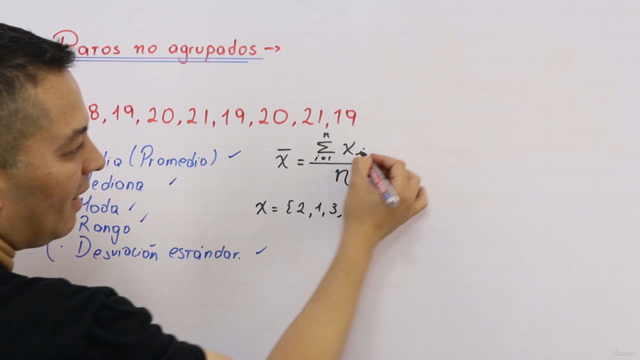 Datos no agrupados →
8, 19, 20, 21, 19, 20, 21, 19
dia (Promedio) ✓
ediana ✓
Moda ✓
Rango ✓
Desviación estándar. ✓
x̄ = Σ i=1 n x i / n
x = {2, 1, 3,